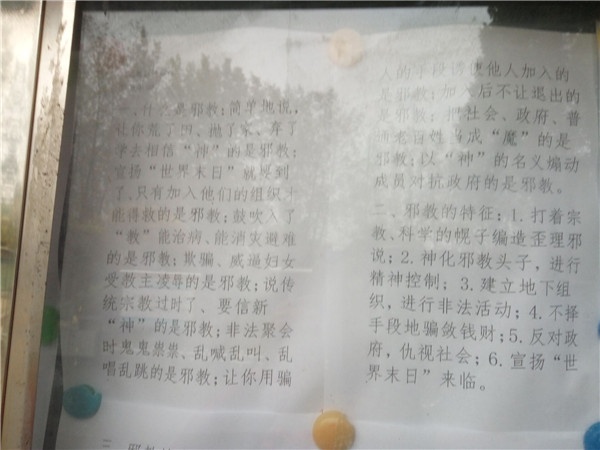 一、什么是邪教：简单地说，
让你荒了田、抛了家、弃了
学去相信“神”的是邪教；
宣扬“世界末日”就要到
了、只有加入他们的组织才
能得救的是邪教；鼓吹入了
“教”能治病、能消灾避难
的是邪教；欺骗、威逼妇女
受教主凌辱的是邪教；说传
统宗教过时了、要信新
“神”的是邪教；非法聚会
时鬼鬼祟祟、乱喊乱叫、乱
唱乱跳的是邪教；让你用骗
人的手段诱使他人加入的
是邪教；加入后不让退出的
是邪教；把社会、政府、普
通老百姓当成“魔”的是
邪教；以“神”的名义煽动
成员对抗政府的是邪教。
二、邪教的特征：1.打着宗
教、科学的幌子编造歪理邪
说；2.神化邪教头子，进行
精神控制；3.建立地下组
织，进行非法活动；4.不择
手段地骗敛钱财；5.反对政
府，仇视社会；6.宣扬“世
界末日”来临。